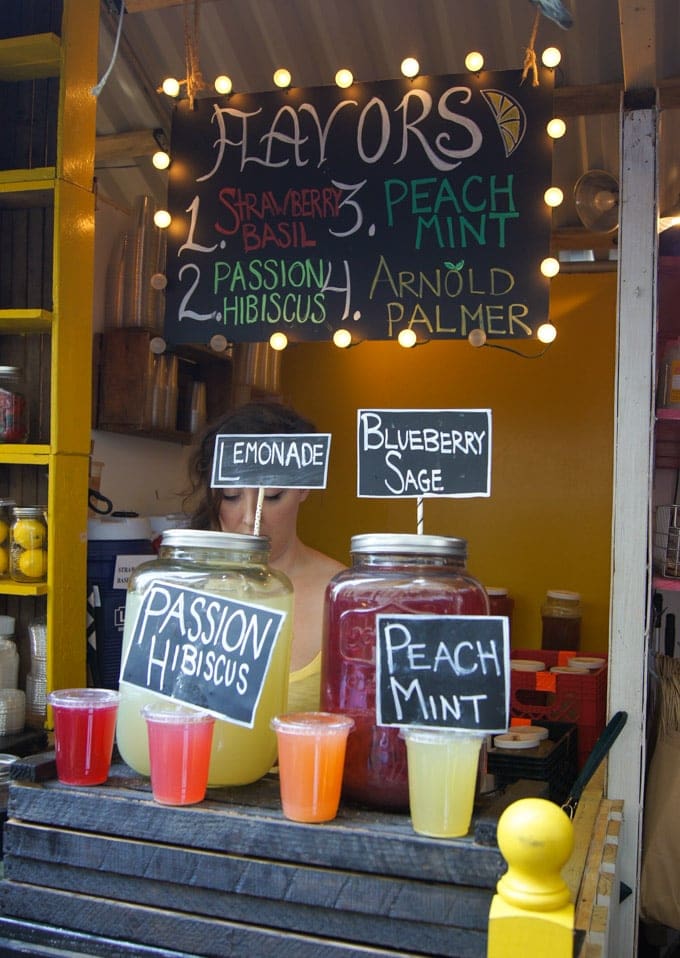 FLAVORS
1. STRAWBERRY
BASIL
2. PASSION
HIBISCUS
3. PEACH
MINT
4. ARNOLD
PALMER
LEMONADE
BLUEBERRY
SAGE
PASSION
HIBISCUS
PEACH
MINT